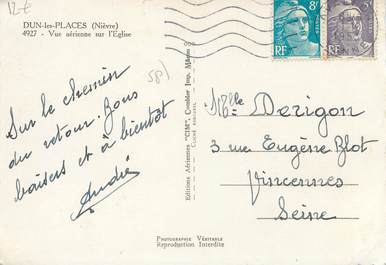 12€
DUN-les-PLACES (Nièvre)
4927 - Vue aérienne sur l'Eglise
8F
RF
RF
Sur le chemin
du retour. Bons
baisers et à bientôt
André
Editions Aériennes "CIM", Combier Imp. Mâcon
Mlle Derigon
3 rue Eugène Blot
Vincennes
Seine
Photographie Véritable
Reproduction Interdite